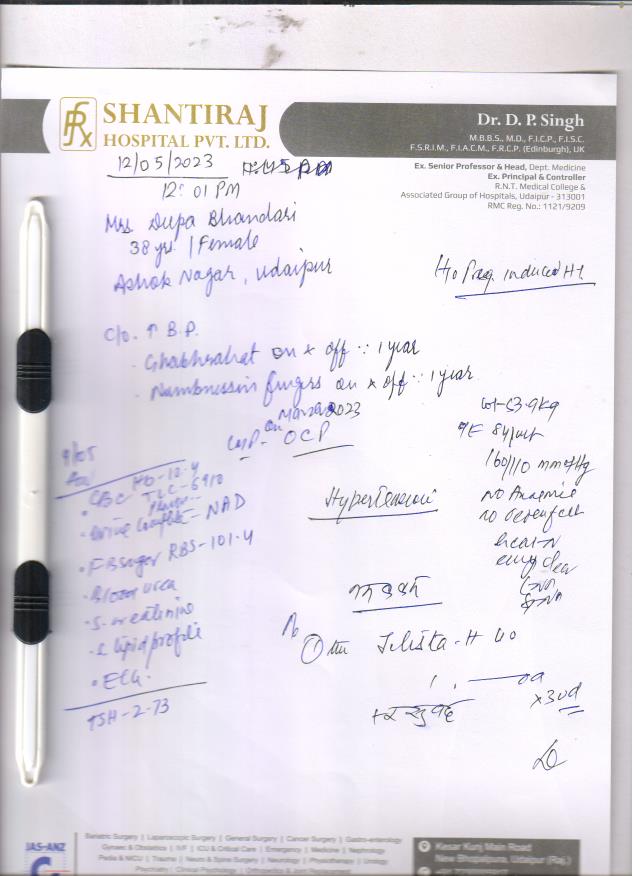 SHANTIRAJ
HOSPITAL PVT. LTD.
Dr. D. P. Singh
M.B.B.S., M.D., F.I.C.P., F.I.S.C.
F.S.R.I.M., F.I.A.C.M., F.R.C.P. (Edinburgh), UK
Ex. Senior Professor & Head, Dept. Medicine
Ex. Principal & Controller
R.N.T. Medical College &
Associated Group of Hospitals, Udaipur - 313001
RMC Reg. No.: 1121/9209
12/05/2023
12:01 PM
Mrs. Dupa Bhandari
38 yrs / Female
Ashok Nagar, Udaipur
H/o Preg. induced HT
C/o. ↑ B.P.
- Ghabhrahat on & off :: 1 year
- Numbness in fingers on & off :: 1 year
2023
on OCP
wt-53.9kg
160/110 mmHg
No Anaemia
Hypertension
9/05
• CBC Hb-10.4
TLC-5910
• Urine Complete - NAD
• FBSugar RBS-101.4
• Blood urea
• S. creatinine
• S. lipid profile
• ECG.
TSH-2.73
① Telista-H 40
x30d
Bariatric Surgery | Laparoscopic Surgery | General Surgery | Cancer Surgery | Gastro-enterology
Gynaec & Obstatics | IVF | ICU & Critical Care | Emergency | Medicine | Nephrology
Pedia & NICU | Trauma | Neuro & Spine Surgery | Neurology | Physiotherapy | Urology
Psychiatry | Clinical Psychology | Orthopaedics & Joint Replacement
JAS-ANZ
Kesar Kunj Main Road
New Bhopalpura, Udaipur (Raj.)